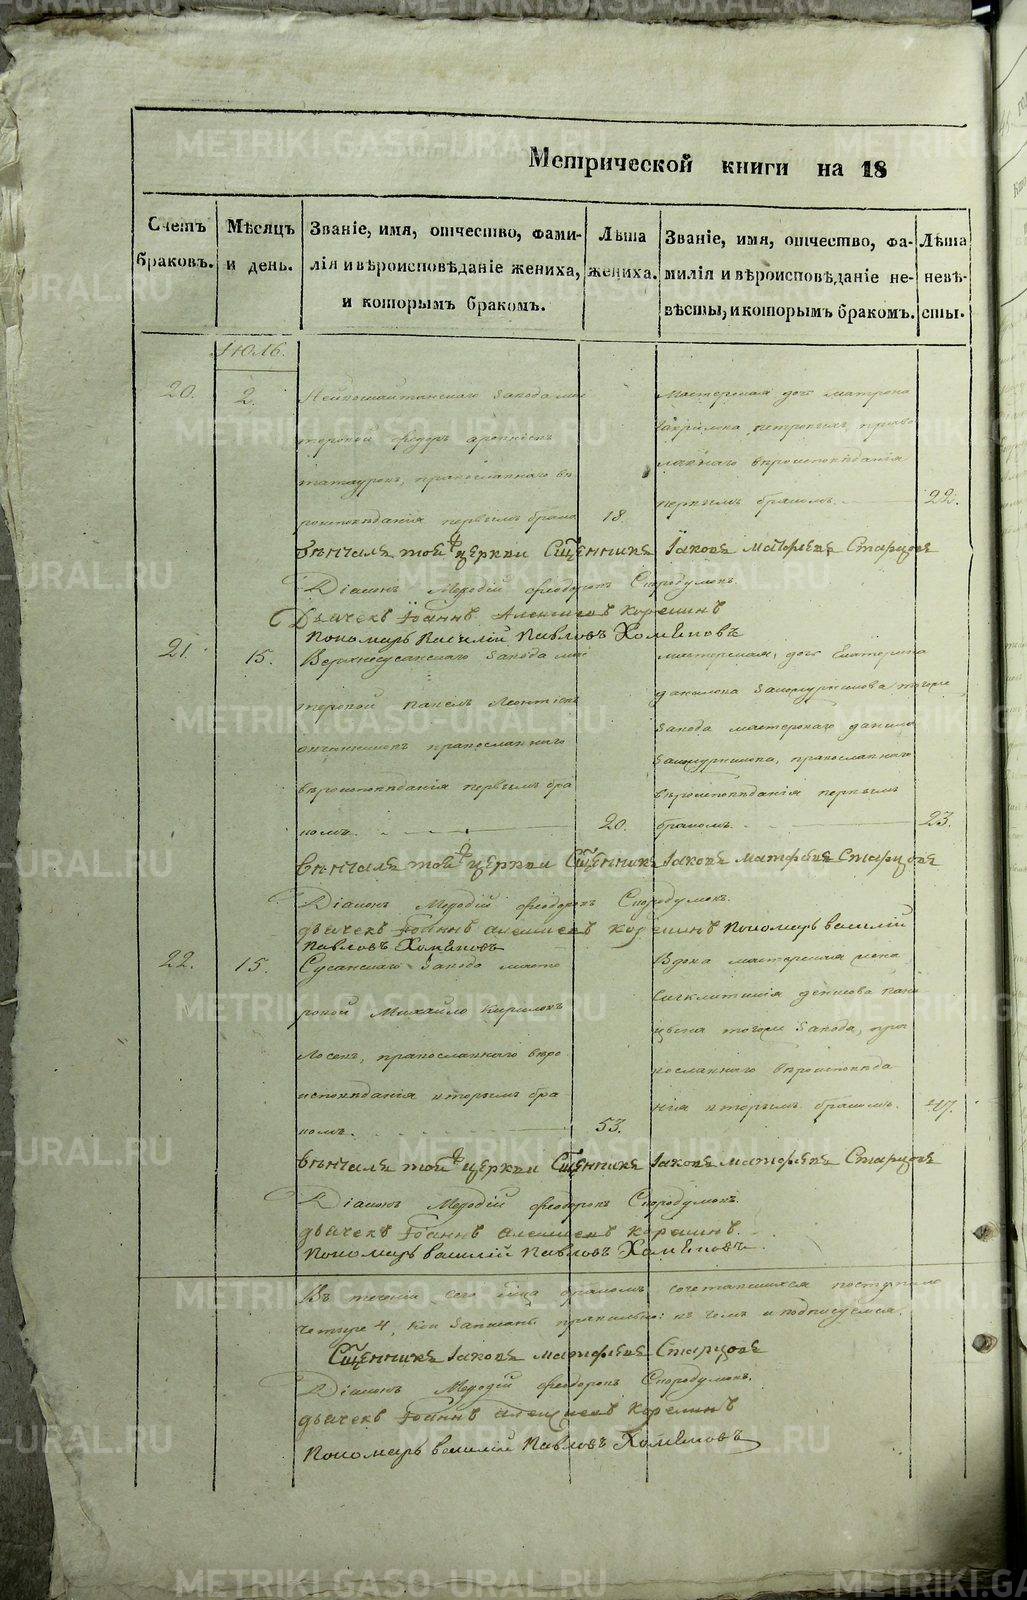 Метрической книги на 18
Счетъ браковъ.
Мѣсяцъ и день.
Званіе, имя, отчество, фами-
лія и вѣроисповѣданіе жениха,
и которымъ бракомъ.
Лѣта
жениха.
Званіе, имя, отчество, фа-
милія и вѣроисповѣданіе не-
вѣсты, и которымъ бракомъ.
Лѣта
невѣ-
сты.
Іюль.
20.
2.
Нейвошайтанскаго завода мас
теровой Федоръ
православнаго вѣ
роисповѣданія первымъ брако
18.
Мастерская дочь Матрона
Гаврилова Петровыхъ право
славнаго вѣроисповѣданія
первымъ бракомъ.
22.
Вѣнчалъ той церкви Сщенникъ Іаковъ Матфѣевъ Старцовъ
Діаконъ Меѳодій Феодоровъ Словодумовъ.
Дьячекъ Іоаннъ Алексѣевъ Корелинъ
Пономарь Василій Павловъ Хомѣковъ
21.
15.
Верхнесусанскаго завода мас
теровой Павелъ Леонтіевъ
православнаго
вѣроисповѣданія первымъ бра
комъ.
20.
Мастерская дочь Екатерина
Данилова тогоже
завода мастерскаго Данила
православнаго
вѣроисповѣданія первымъ
бракомъ.
23.
Вѣнчалъ той церкви Сщенникъ Іаковъ Матфѣевъ Старцовъ
Діаконъ Меѳодій Феодоровъ Словодумовъ.
Дьячекъ Іоаннъ Алексѣевъ Корелинъ Пономарь Василій
Павловъ Хомѣковъ
22.
15.
Сусанскаго завода масте
ровой Михайло Кириловъ
Лосевъ, православнаго вѣро
исповѣданія вторымъ бра
комъ.
53.
Вдова мастерская жена
Сигклитикія Денисова
тогоже завода, пра
вославнаго вѣроисповѣда
нія вторымъ бракомъ.
47.
Вѣнчалъ той церкви Сщенникъ Іаковъ Матфѣевъ Старцовъ
Діаконъ Меѳодій Феодоровъ Словодумовъ.
Дьячекъ Іоаннъ Алексѣевъ Корелинъ.
Пономарь Василій Павловъ Хомѣковъ.
Въ теченіи сего м-ца бракомъ сочетавшихся поступило
четыре 4, кои записаны правильно: въ чемъ и подписуемся.
Сщенникъ Іаковъ Матфѣевъ Старцовъ
Діаконъ Меѳодій Феодоровъ Словодумовъ.
Дьячекъ Іоаннъ Алексѣевъ Корелинъ
Пономарь Василій Павловъ Хомѣковъ
METRIKI.GASO-URAL.RU